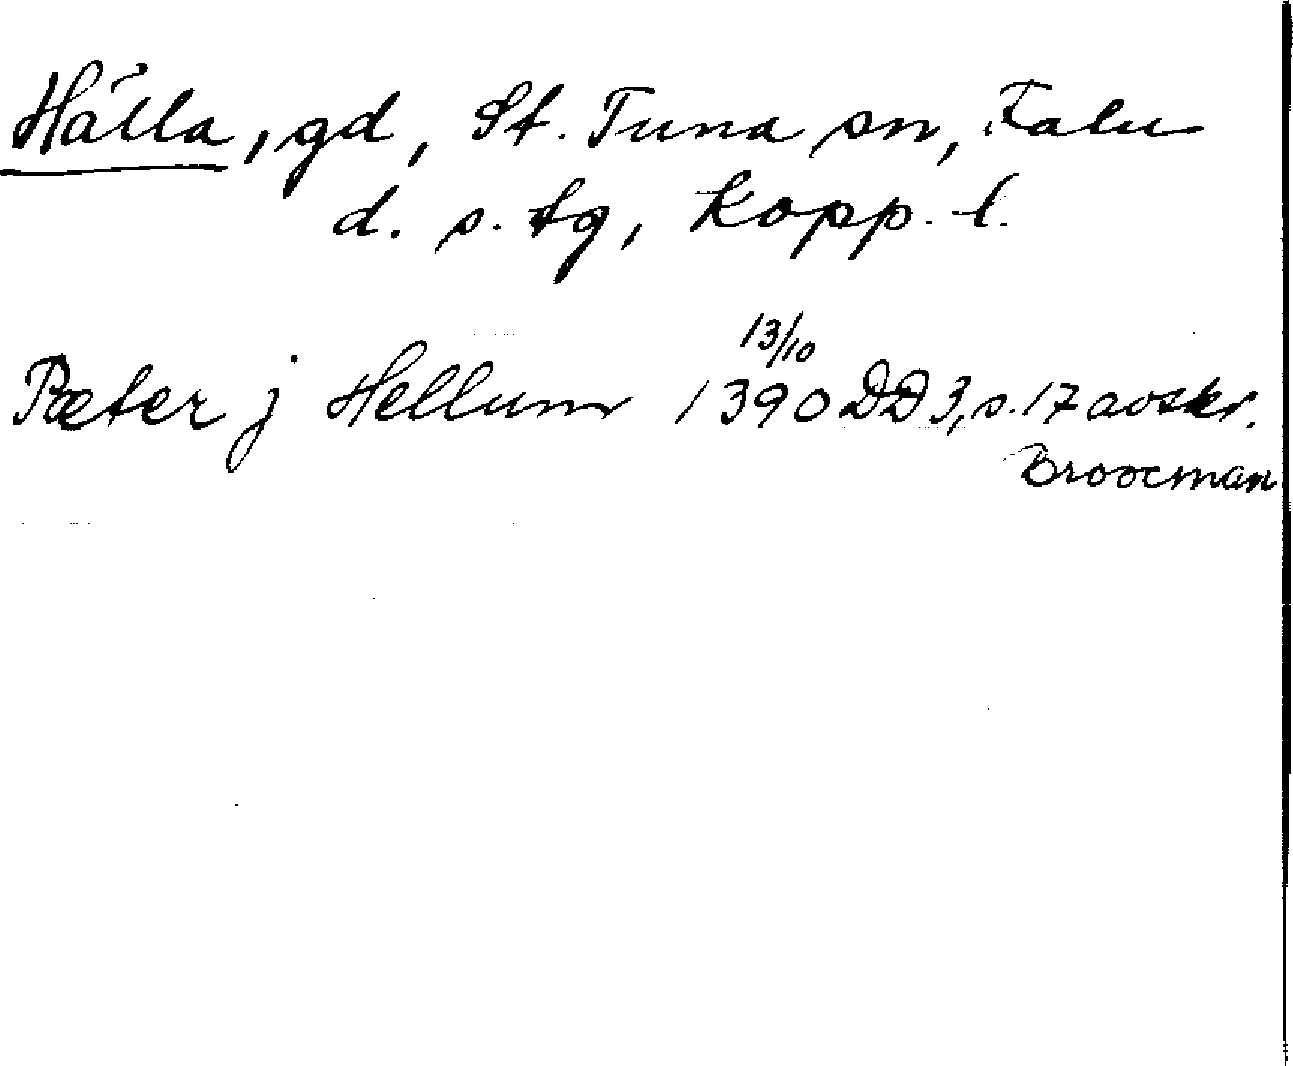 Hälla, gd, St. Tuna sn, Falu
d. s. tg, Kopp. l.
Pæter j Hellum 13/10 1390 DD 3, s. 17 avskr.
Broocman